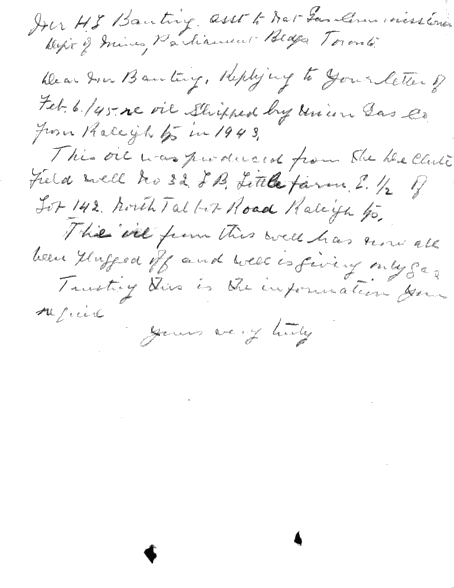 Mr H.S. Banting. asst to Nat Gas Commissioner
Dept of Mines, Parliament Bldgs Toronto.
Dear Mr Banting, Replying to Your letter of
Feb. 6/45 re oil Shipped by Union Gas Co
from Raleigh tp in 1943.
This oil was produced from the De Clute
Field well No 32 J B, Little farm. E. 1/2 of
Lot 142. North Talbot Road Raleigh tp.
The oil from this well has now all
been Plugged off and well is giving only gas
Trusting this is the information your
require
Yours very truly